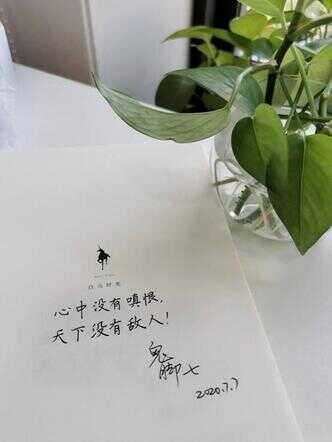 白马时光
心中没有嗔恨,
天下没有敌人!
鬼脚七
2020.7.7